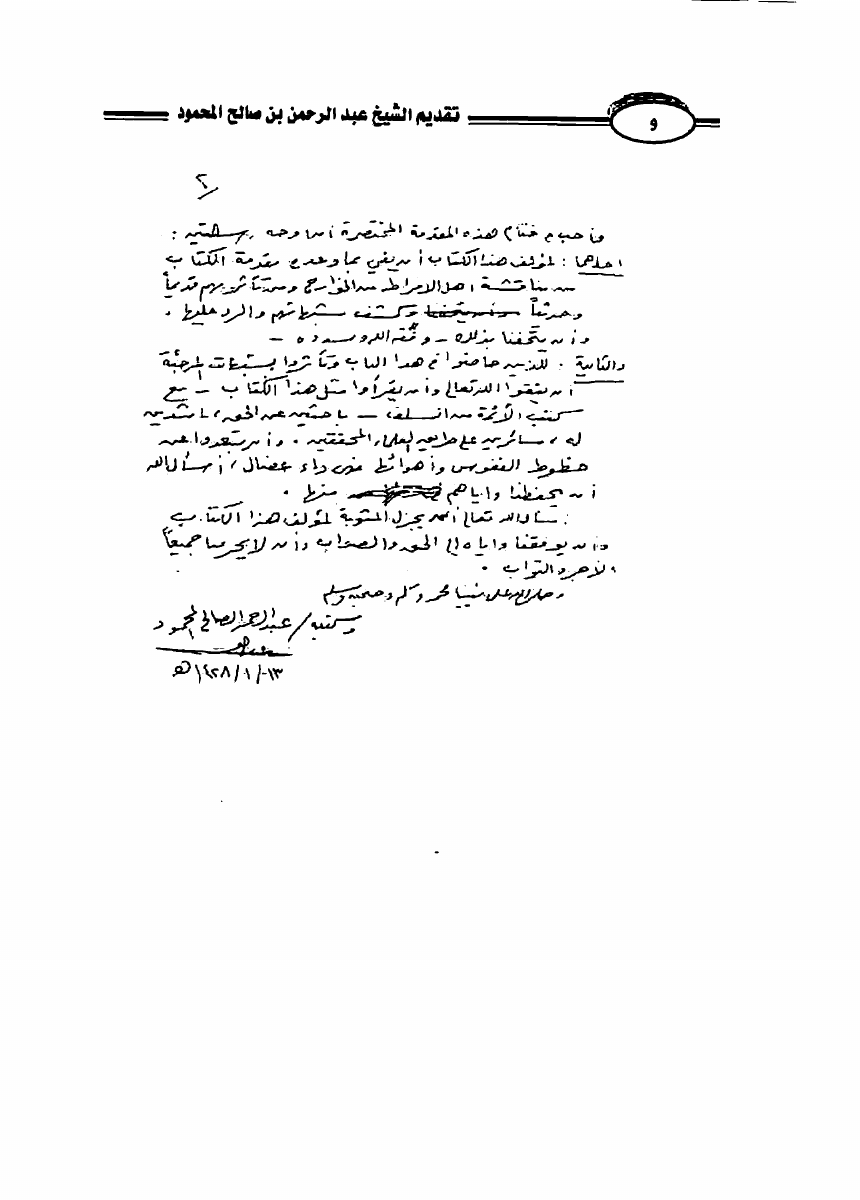 تقديم الشيخ عبد الرحمن بن صالح المحمود
و
٢/
وأحب في ختام هذه المقدمة المختصرة أن أوجه رسالتين :
احداهما : لمؤلف هذا الكتاب أن يفي بما وعد في مقدمة الكتاب
من مناقشة أهل الإفراط من الخوارج ومن تأثر بهم قديماً
وحديثاً وكشف شبهاتهم والرد عليها .
وأن يتحفنا بذلك - وفقه الله وسدده -
والثانية : للذين خاضوا في هذا الباب وتأثروا بشبهات المرجئة
أن يتقوا الله تعالى وأن يقرأوا مثل هذا الكتاب - مع
كتب الأئمة من السلف - باحثين عن الحق، ناشدين
له، سائرين على طريق العلماء المحققين . وأن يبتعدوا عن
حظوظ النفوس وأهوائها فهي داء عضال، أسأل الله
أن يحفظنا وإياهم منها .
أسأل الله تعالى أن يجزل المثوبة لمؤلف هذا الكتاب
وأن يوفقنا وإياه إلى الحق والصواب وأن لا يحرمنا جميعاً
الأجر والثواب .
وصلى الله على نبينا محمد وآله وصحبه وسلم
وكتبه / عبد الرحمن الصالح المحمود
١٤٢٨/١/١٣ هـ